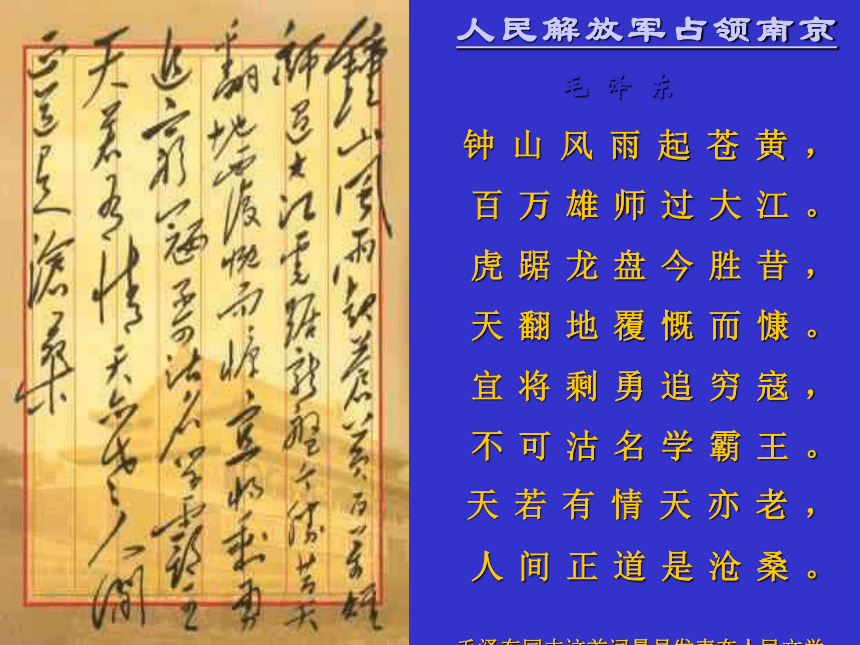 鍾山風雨起蒼黃百萬雄
師過大江虎踞龍盤今勝昔天
翻地覆慨而慷宜將剩勇
追窮寇不可沽名學霸王
天若有情天亦老人間
正道是滄桑
人民解放军占领南京
毛泽东
钟山风雨起苍黄，
百万雄师过大江。
虎踞龙盘今胜昔，
天翻地覆慨而慷。
宜将剩勇追穷寇，
不可沽名学霸王。
天若有情天亦老，
人间正道是沧桑。